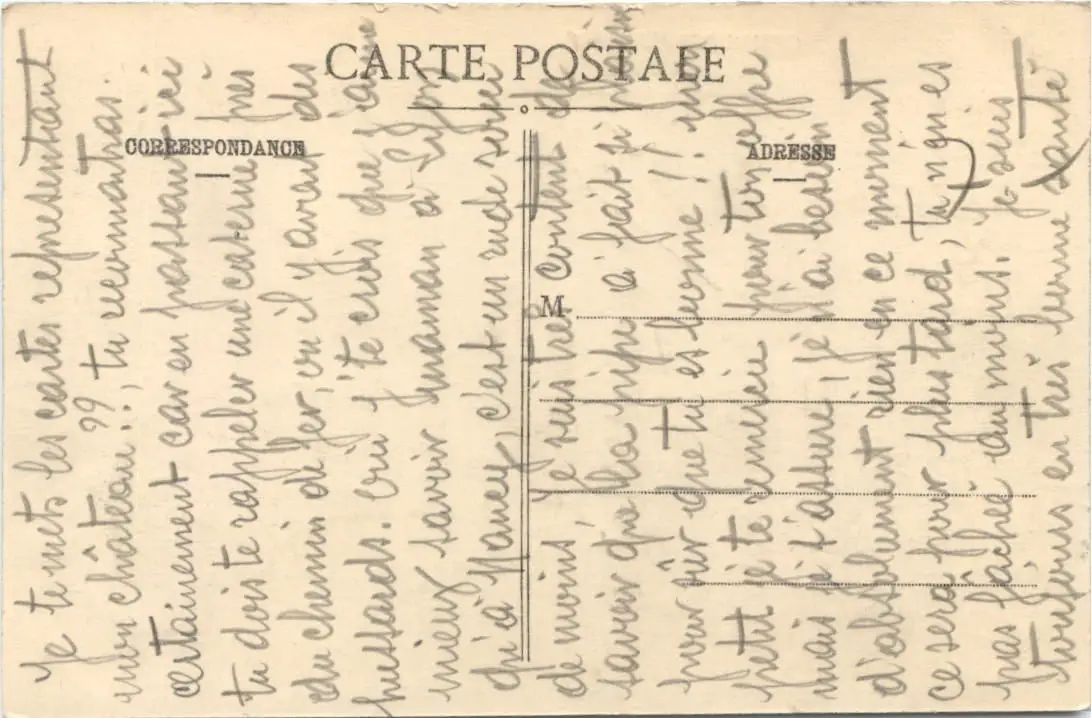 CARTE POSTALE
CORRESPONDANCE
ADRESSE
M
Je te mets les cartes représentant
mon château !, 99 tu reconnaitras.
certainement car en passant ici
tu dois te rappeler une caserne près
du chemin de fer, où il y avait des
hussards. oui j'te crois que j'aime
mieux savoir maman à
qu'à Nancy, c'est un rude
de moins, Je suis très content de
savoir que la nipe a fait si
pour sûr que tu es borne !! mon
petit je te remercie pour ton offre
mais j't'assure, je n'ai besoin
d'absolument rien en ce moment
ce sera pour plus tard, tu n'en es
pas fâchée au moins. Je suis
toujours en très bonne santé